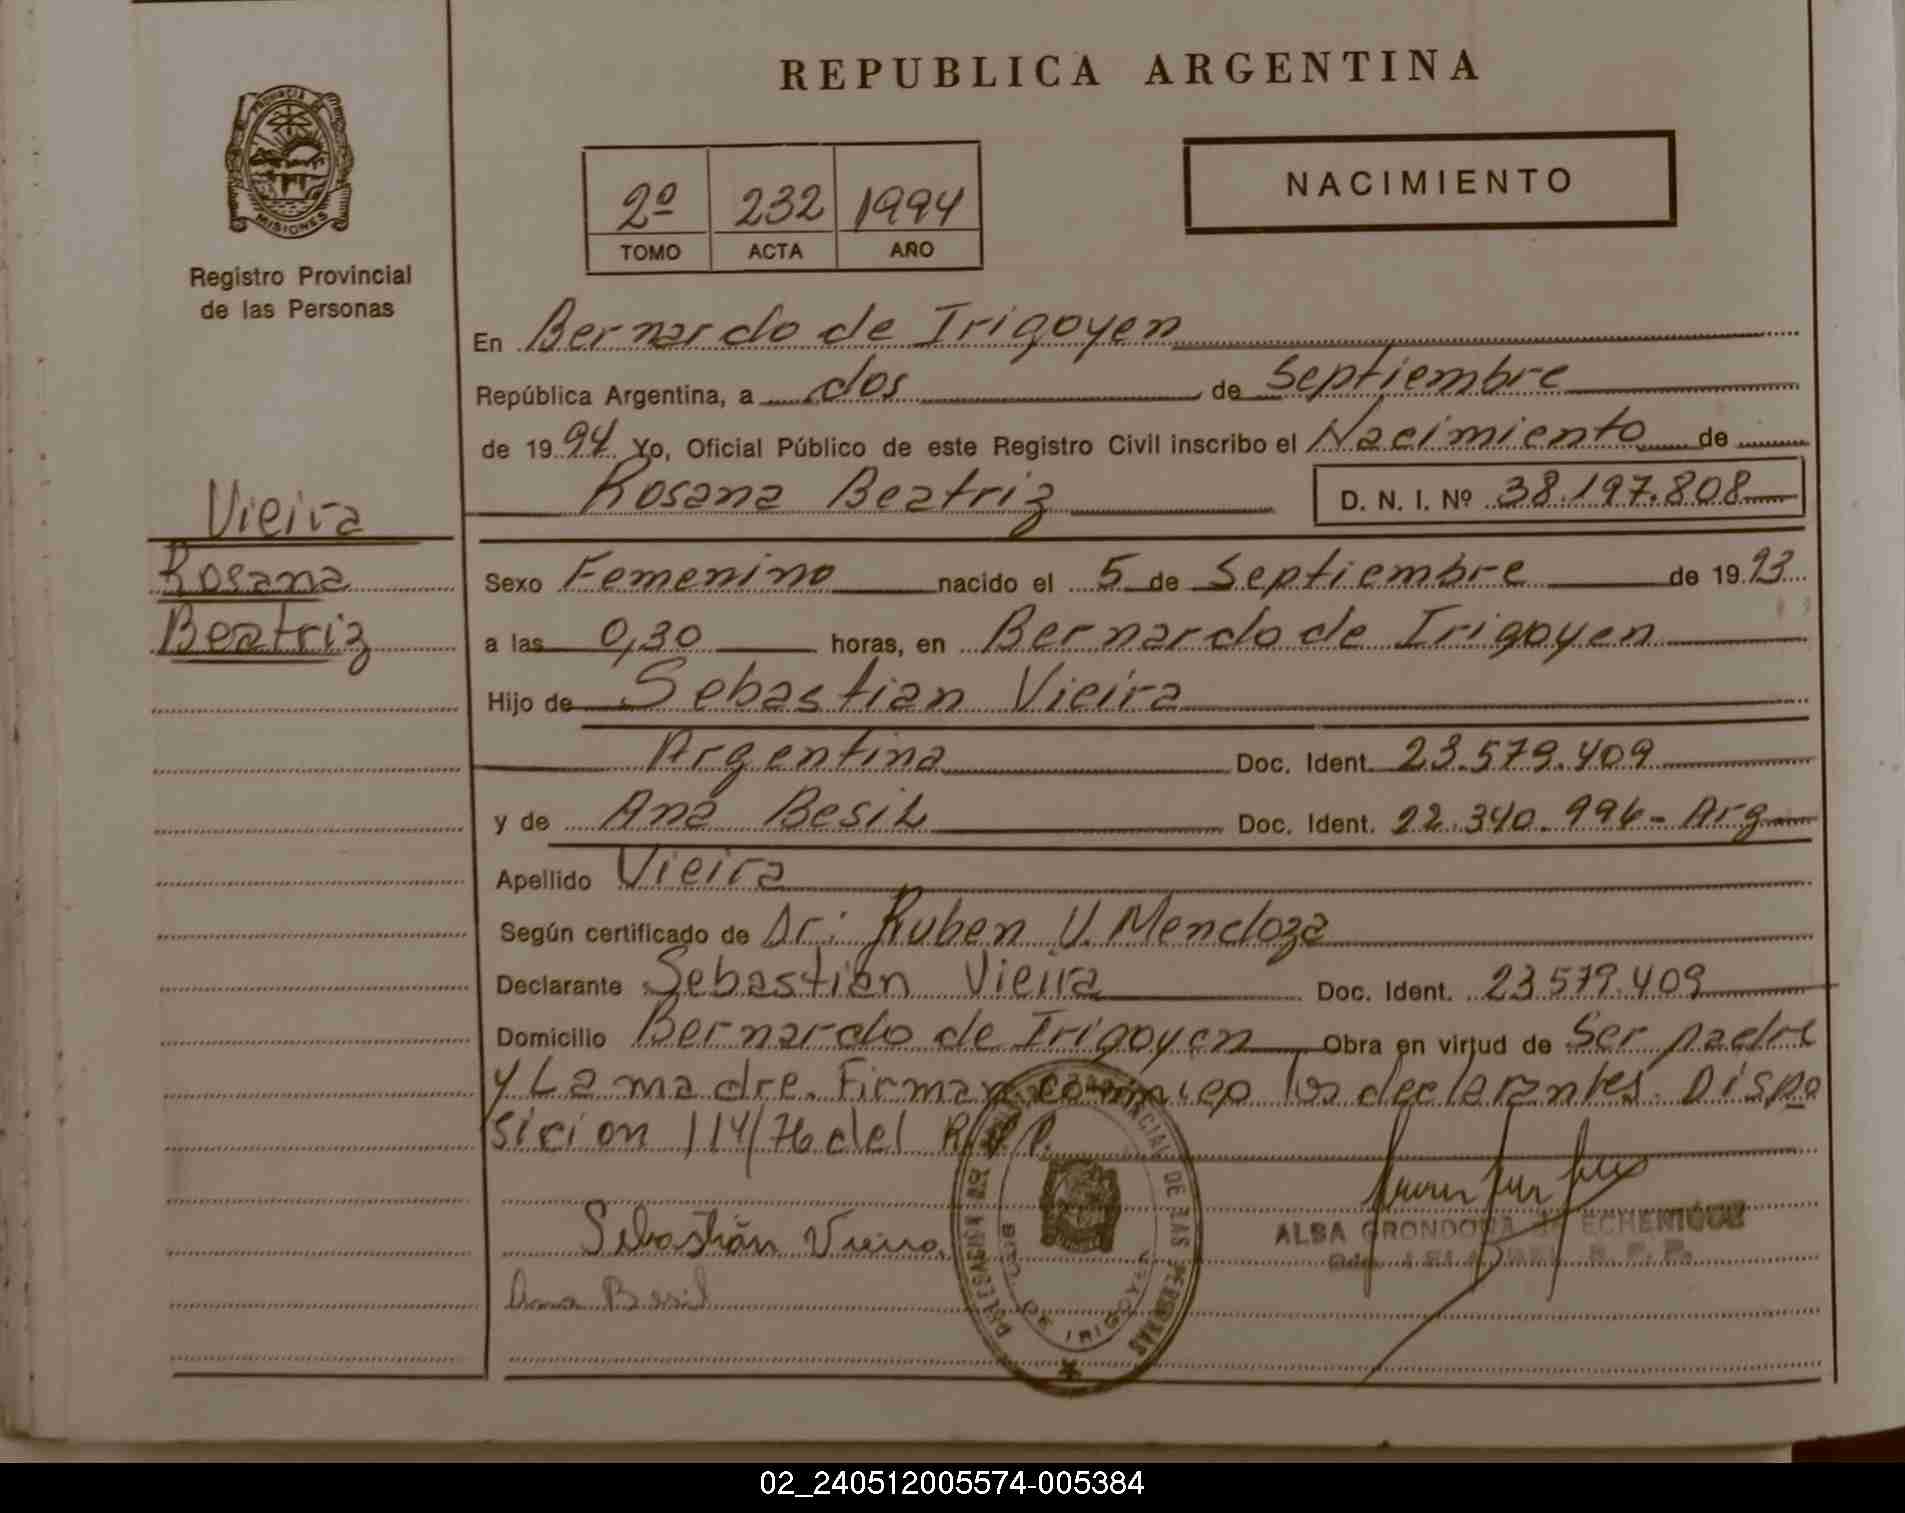 REPUBLICA ARGENTINA
PROVINCIA DE MISIONES
Registro Provincial
de las Personas
2º 232 1994
TOMO ACTA AÑO
NACIMIENTO
En Bernardo de Irigoyen
República Argentina, a dos de Septiembre
de 1994 Yo, Oficial Público de este Registro Civil inscribo el Nacimiento de
Rosana Beatriz D. N. I. Nº 38.197.808
Vieira
Rosana
Beatriz
Sexo Femenino nacido el 5 de Septiembre de 1993
a las 0,30 horas, en Bernardo de Irigoyen
Hijo de Sebastian Vieira
Argentina Doc. Ident. 23.579.409
y de Ana Besil Doc. Ident. 22.340.996- Arg
Apellido Vieira
Según certificado de Dr: Ruben V. Mendoza
Declarante Sebastian Vieira Doc. Ident. 23.579.409
Domicilio Bernardo de Irigoyen Obra en virtud de Ser padre
y La madre. Firman conmigo los declarantes. Dispo
sicion 114/76 del R.P.P.
Sebastián Vieira
Ana Besil
DELEGACIÓN DEL PROVINCIAL DE LAS PERSONAS
BDO. DE IRIGOYEN
ALBA GRONDONA DE ECHENIQUE
R. P. P.
02_240512005574-005384